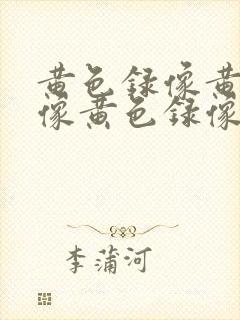 黄色録像黄
像黄色録像
李蒲河